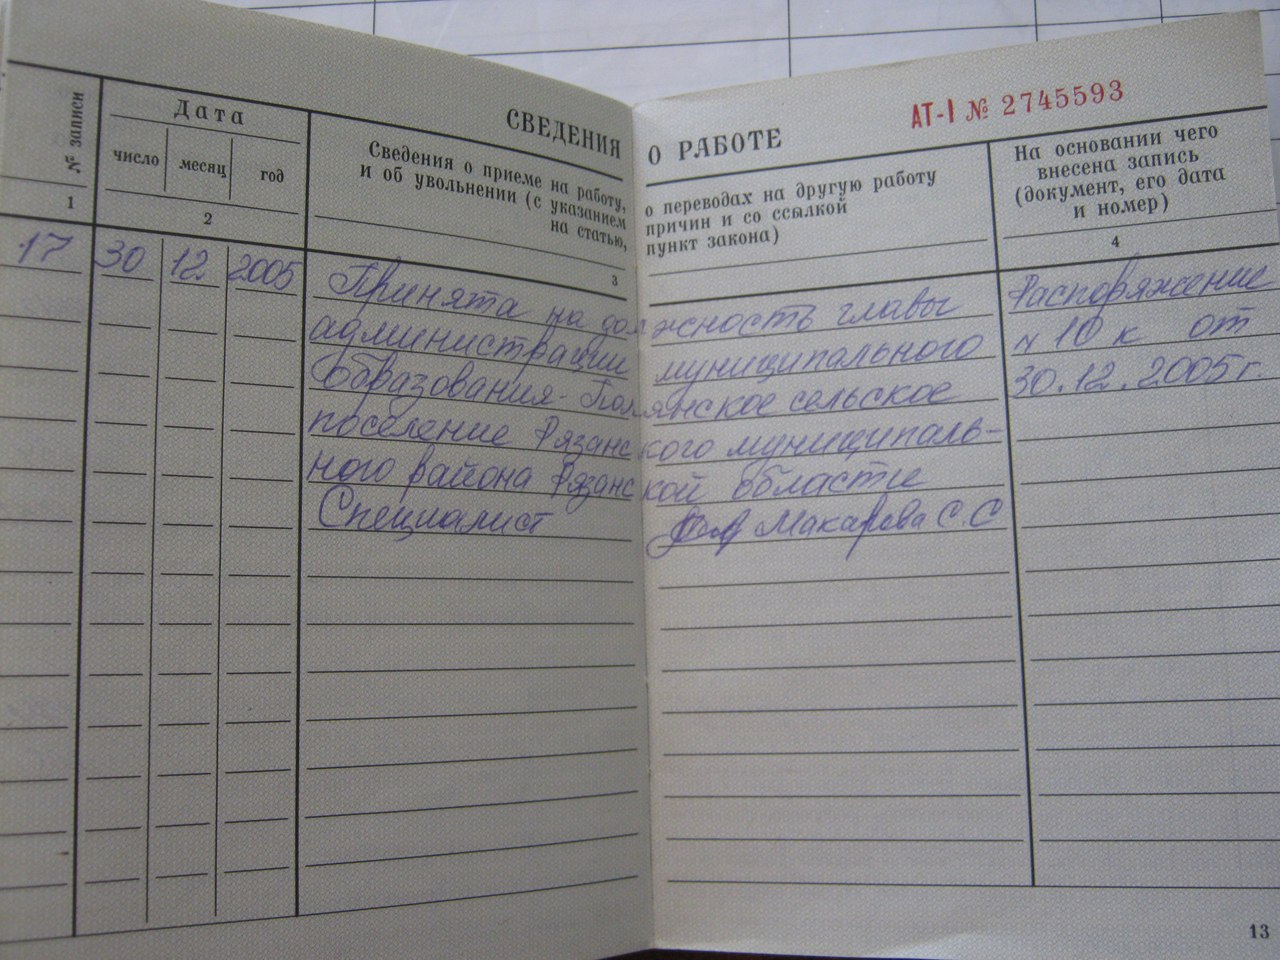 СВЕДЕНИЯ О РАБОТЕ
АТ-I № 2745593
№ записи
Дата
число месяц год
Сведения о приеме на работу, о переводах на другую работу
и об увольнении (с указанием причин и со ссылкой
на статью, пункт закона)
На основании чего
внесена запись
(документ, его дата
и номер)
1 2 3 4
17 30 12 2005 Принята на должность главы Распоряжение
администрации муниципального N 10 к от
образования - Полянское сельское 30.12.2005 г.
поселение Рязанского муниципаль-
ного района Рязанской области
Специалист Макарова С.С
13